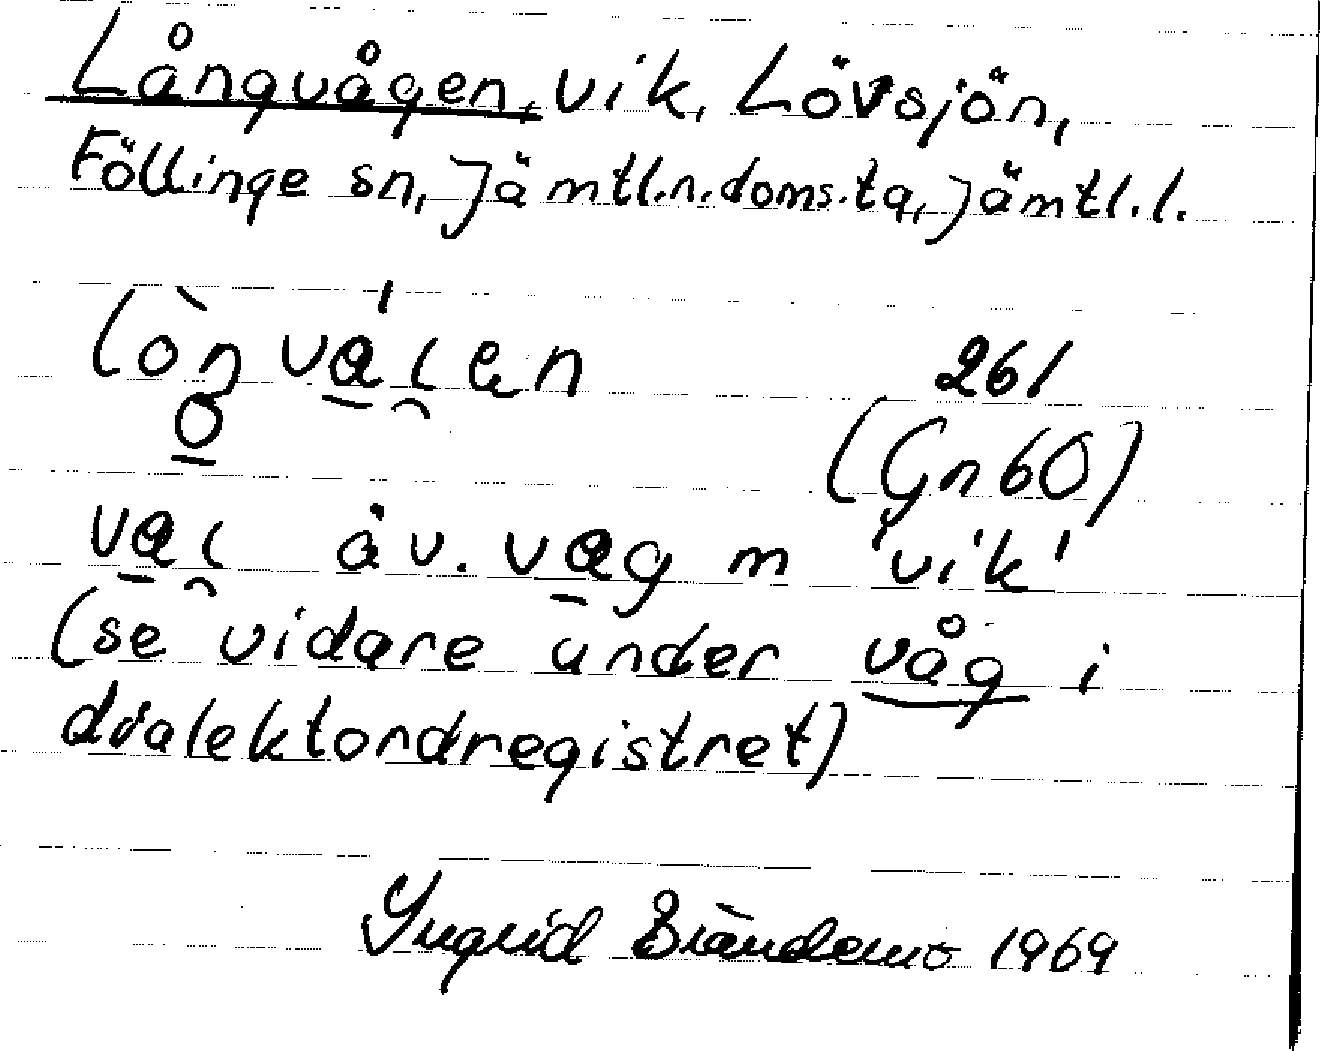 Långvågen, vik, Lövsjön,
Föllinge sn, Jämtl.n.doms.tg, Jämtl.l.
261
(Gn 60)
av. våg m 'vik'
(se vidare under våg i
dialektordregistret)
Ingrid Brändemo 1969